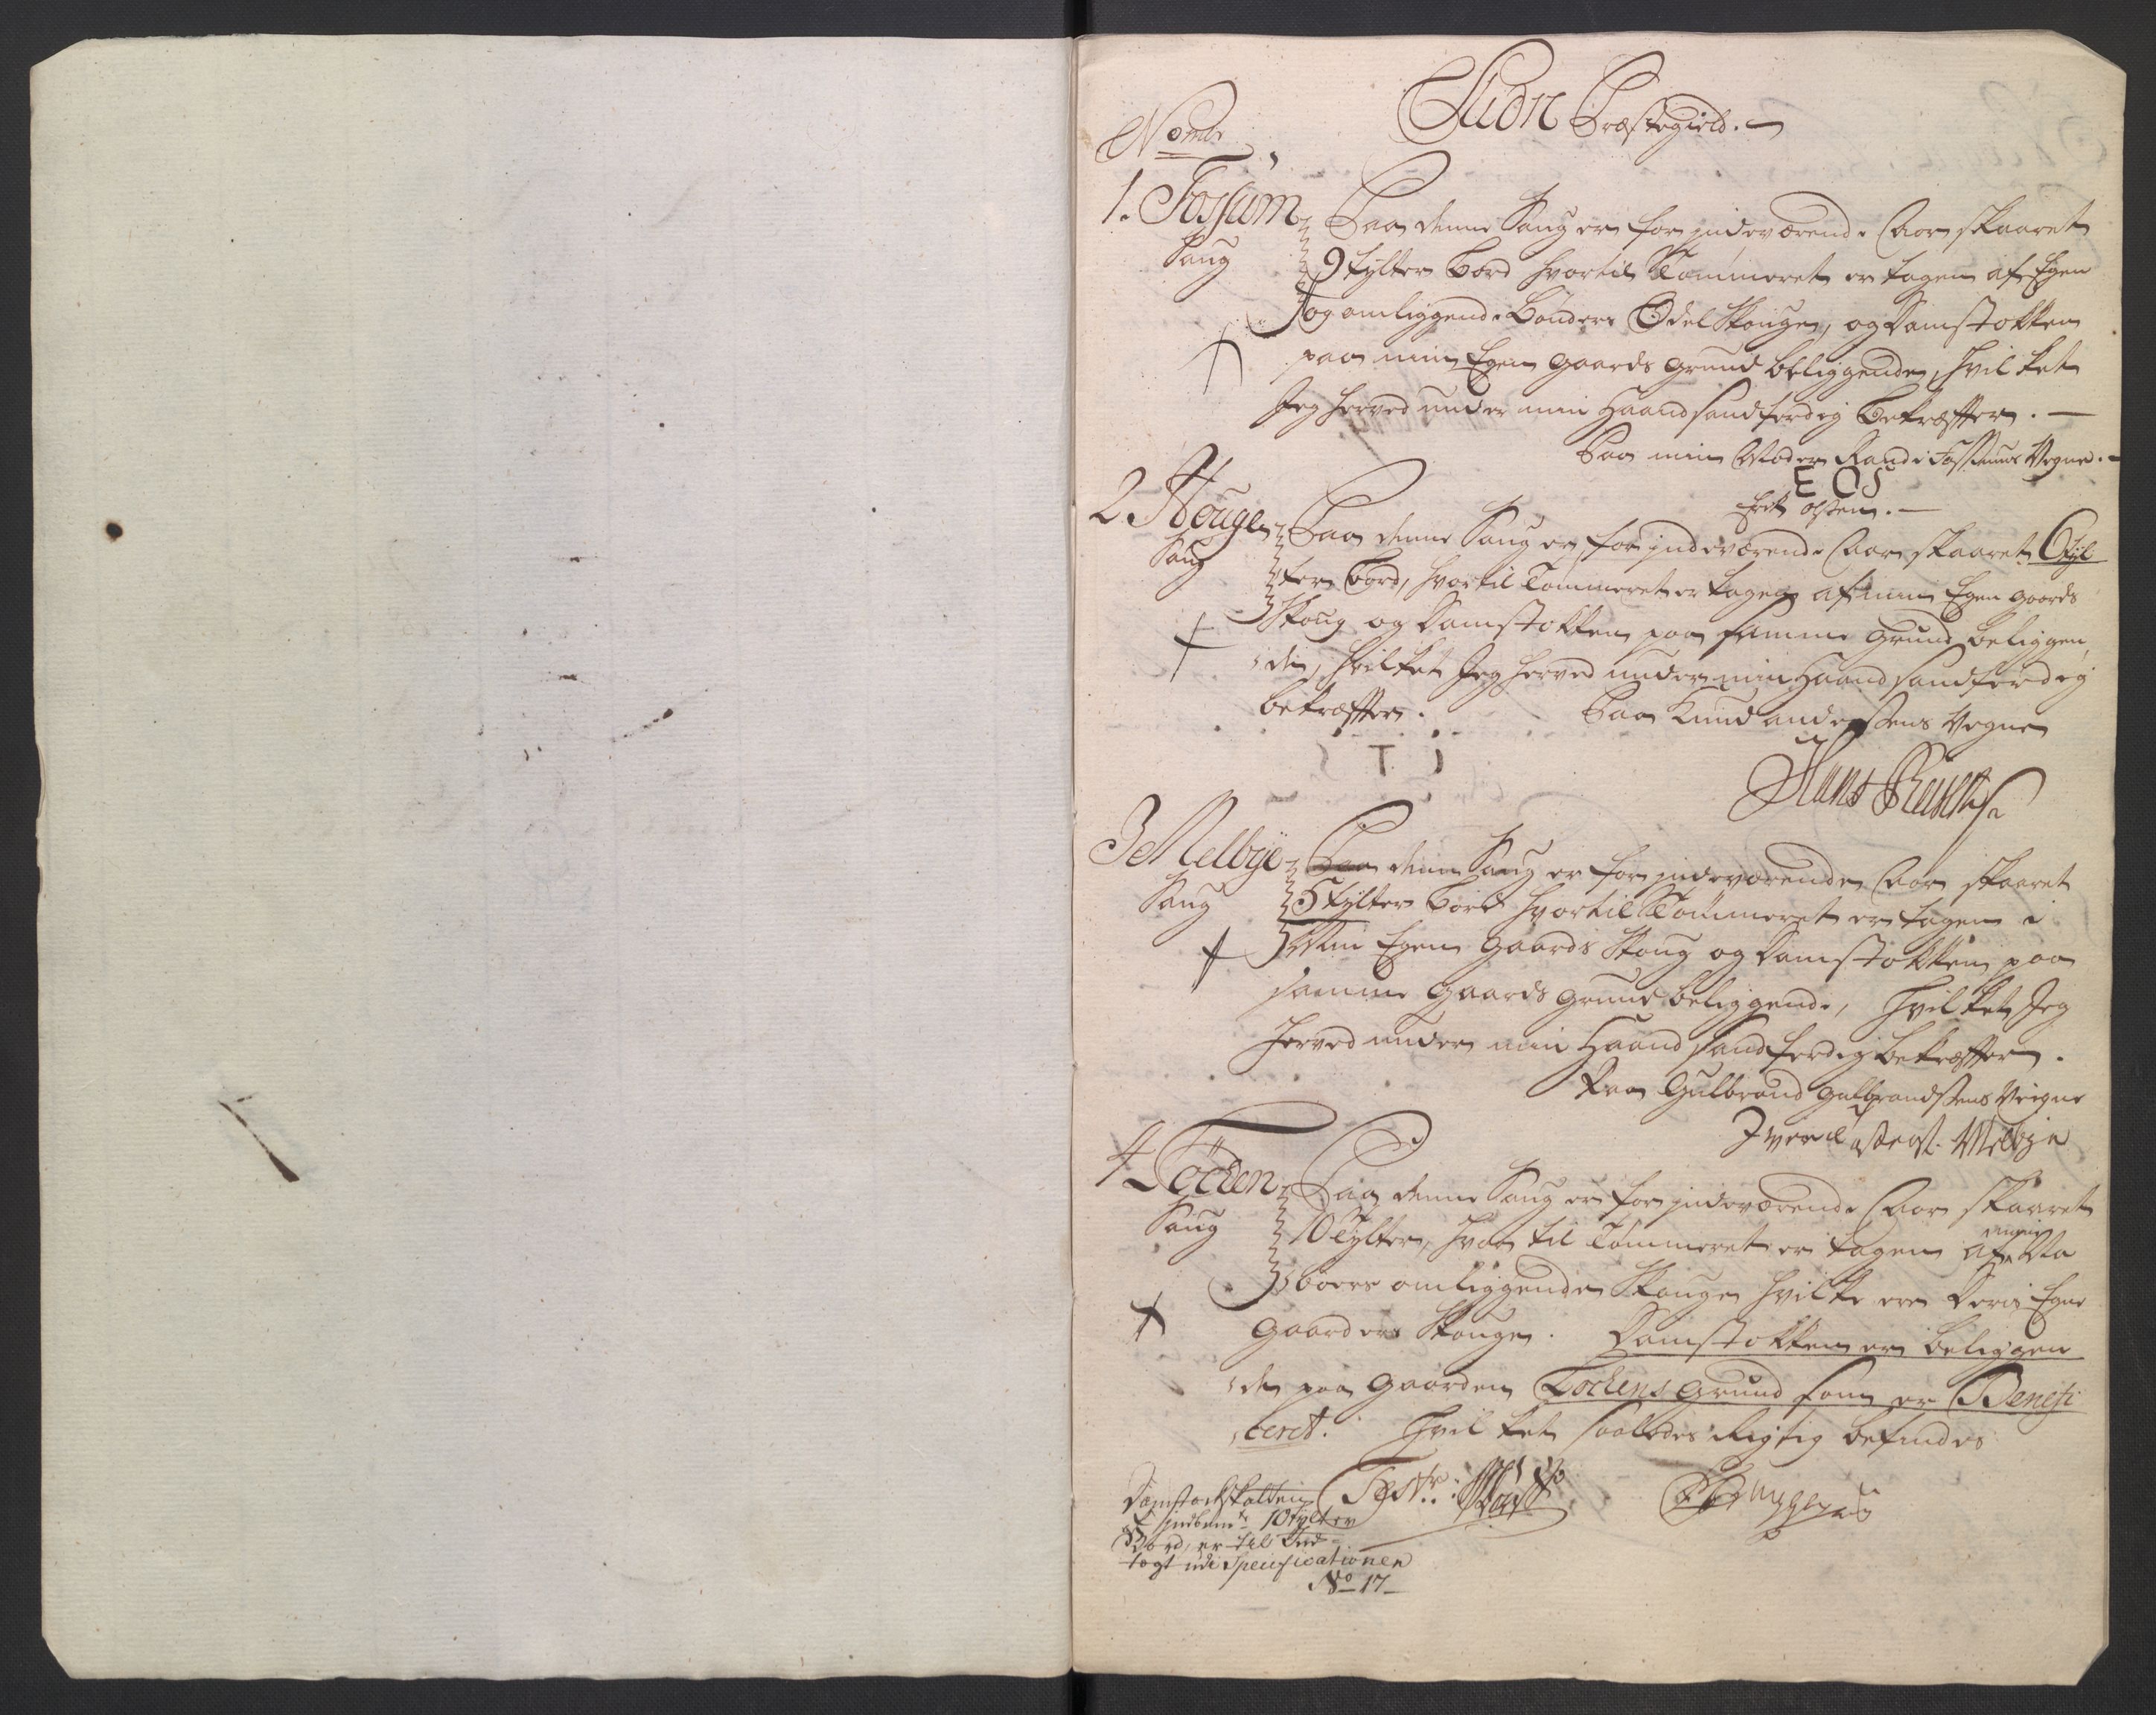 Præstegield.
No
1. Fossum
Saug
Paa denne Saug er for indeværende Aar skaaret
9 tylter Bord hvortil Tømmeret er tagen af Egen
og omliggende Bønders Odel Skouge, og Damstokken
paa min Egen Gaards grund beliggende, hvilket
Jeg herved under min Haand sandferdig Bekræfter.
Paa min Moder Rande Fossums Vegne.
E O S
Olsen.
2. Hougen
Saug
Paa denne Saug er for indeværende Aar skaaret 6 tyl
ter Bord, hvortil Tømmeret er tagen af min Egen gaards
Skoug og Damstokken paa samme Grund beliggen,
de, hvilket Jeg herved under min Haand sandferdig
bekræfter.
Paa Knud anderssens Vegne
Hans
3 Melbye
Saug
Paa denne Saug er for indeværende Aar skaaret
5 tylter Bord hvortil Tømmeret er tagen i
Min Egen Gaards Skoug og Damstokken paa
samme Gaards Grund beliggende, hvilket Jeg
herved under min Haand sandferdig bekræfter.
Paa Gulbrand Gulbrandsens Veigne
Melbye
4 Töchen
Saug
Paa denne Saug er for indeværende Aar skaaret
10 Tylter, hvor til Tømmeret er tagen af min Na
boers omliggende Skouge hvilke ere deris Egne
Gaarders Skouge. Damstokken er beliggen
de paa Gaarden Tochens Grund som er Benefi
ceret. Hvilket saaledes Rigtig befindes
Test:
Damstockskatten
10 tylter
Bord, er til Ind
tegt udi Specificationen
No 17